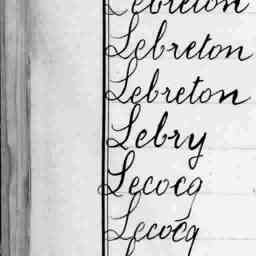 Lebreton
Lebreton
Lebreton
Lebry
Lecocq
Lecocq